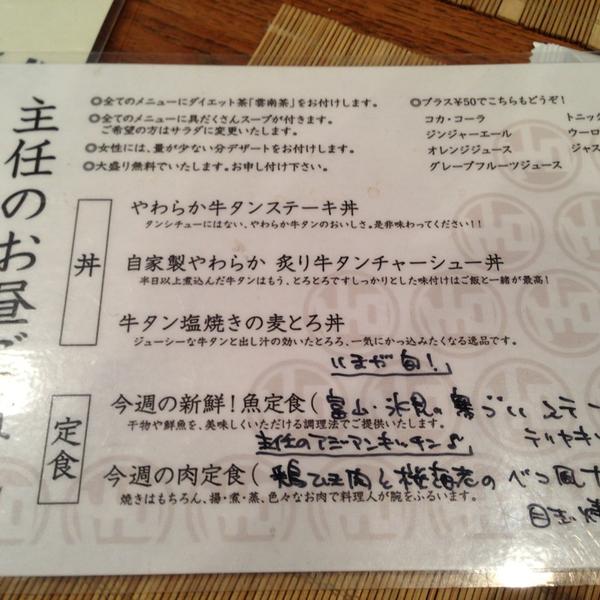 主任のお昼ご
◎全てのメニューにダイエット茶「雲南茶」をお付けします。
◎全てのメニューに具だくさんスープが付きます。
ご希望の方はサラダに変更いたします。
◎女性には、量が少ない分デザートをお付けします。
◎大盛り無料でいたします。お申し付け下さい。
◎プラス¥50でこちらもどうぞ!
コカ・コーラ
ジンジャーエール
オレンジジュース
グレープフルーツジュース
トニック
ウーロ
ジャス
丼
やわらか牛タンステーキ丼
タンシチューにはない、やわらか牛タンのおいしさ。是非味わってください!!
自家製やわらか 炙り牛タンチャーシュー丼
半日以上煮込んだ牛タンはもう、とろとろですしっかりとした味付けはご飯と一緒が最高!
牛タン塩焼きの麦とろ丼
ジューシーな牛タンと出し汁の効いたとろろ、一気にかっ込みたくなる逸品です。
いまが旬!」
定食
今週の新鮮!魚定食(富山・氷見の
テリヤキ
干物や鮮魚を、美味しくいただける調理法でご提供いたします。
主任のアジアンキッチン♪」
今週の肉定食(鶏ひき肉と桜海老のベコ風
目玉焼
焼きはもちろん、揚・煮・蒸、色々なお肉で料理人が腕をふるいます。